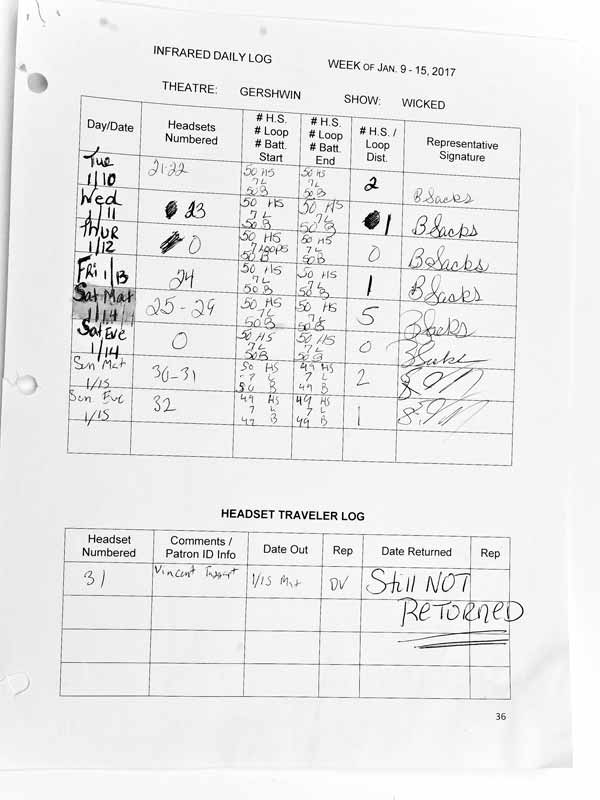 INFRARED DAILY LOG WEEK OF JAN. 9 - 15, 2017
THEATRE: GERSHWIN SHOW: WICKED
Day/Date Headsets Numbered # H.S. # Loop # Batt. Start # H.S. # Loop # Batt. End # H.S. / Loop Dist. Representative Signature
Tue 1/10 21-22 50 HS 7L 50B 50 HS 7L 50B 2 B Sacks
Wed 1/11 23 50 HS 7L 50B 50 HS 7L 50B 1 B Sacks
THUR 1/12 0 50 HS 7 Loops 50 B 50 HS 7L 50B 0 B Sacks
FRi 1/13 24 50 HS 7L 50B 50 HS 7L 50B 1 B Sacks
Sat Mat 1/14 25-29 50 HS 7L 50B 50 HS 7L 50B 5 B Sacks
Sat Eve 1/14 0 50 HS 7L 50B 50 HS 7L 50B 0
Sun Mat 1/15 30-31 50 HS 7 L 50 B 49 HS 7 L 49 B 2
Sun Eve 1/15 32 49 HS 7 L 49 B 49 HS 7 L 49 B 1
HEADSET TRAVELER LOG
Headset Numbered Comments / Patron ID Info Date Out Rep Date Returned Rep
31 Vincent 1/15 Mat DV Still NOT
RETURNED
36